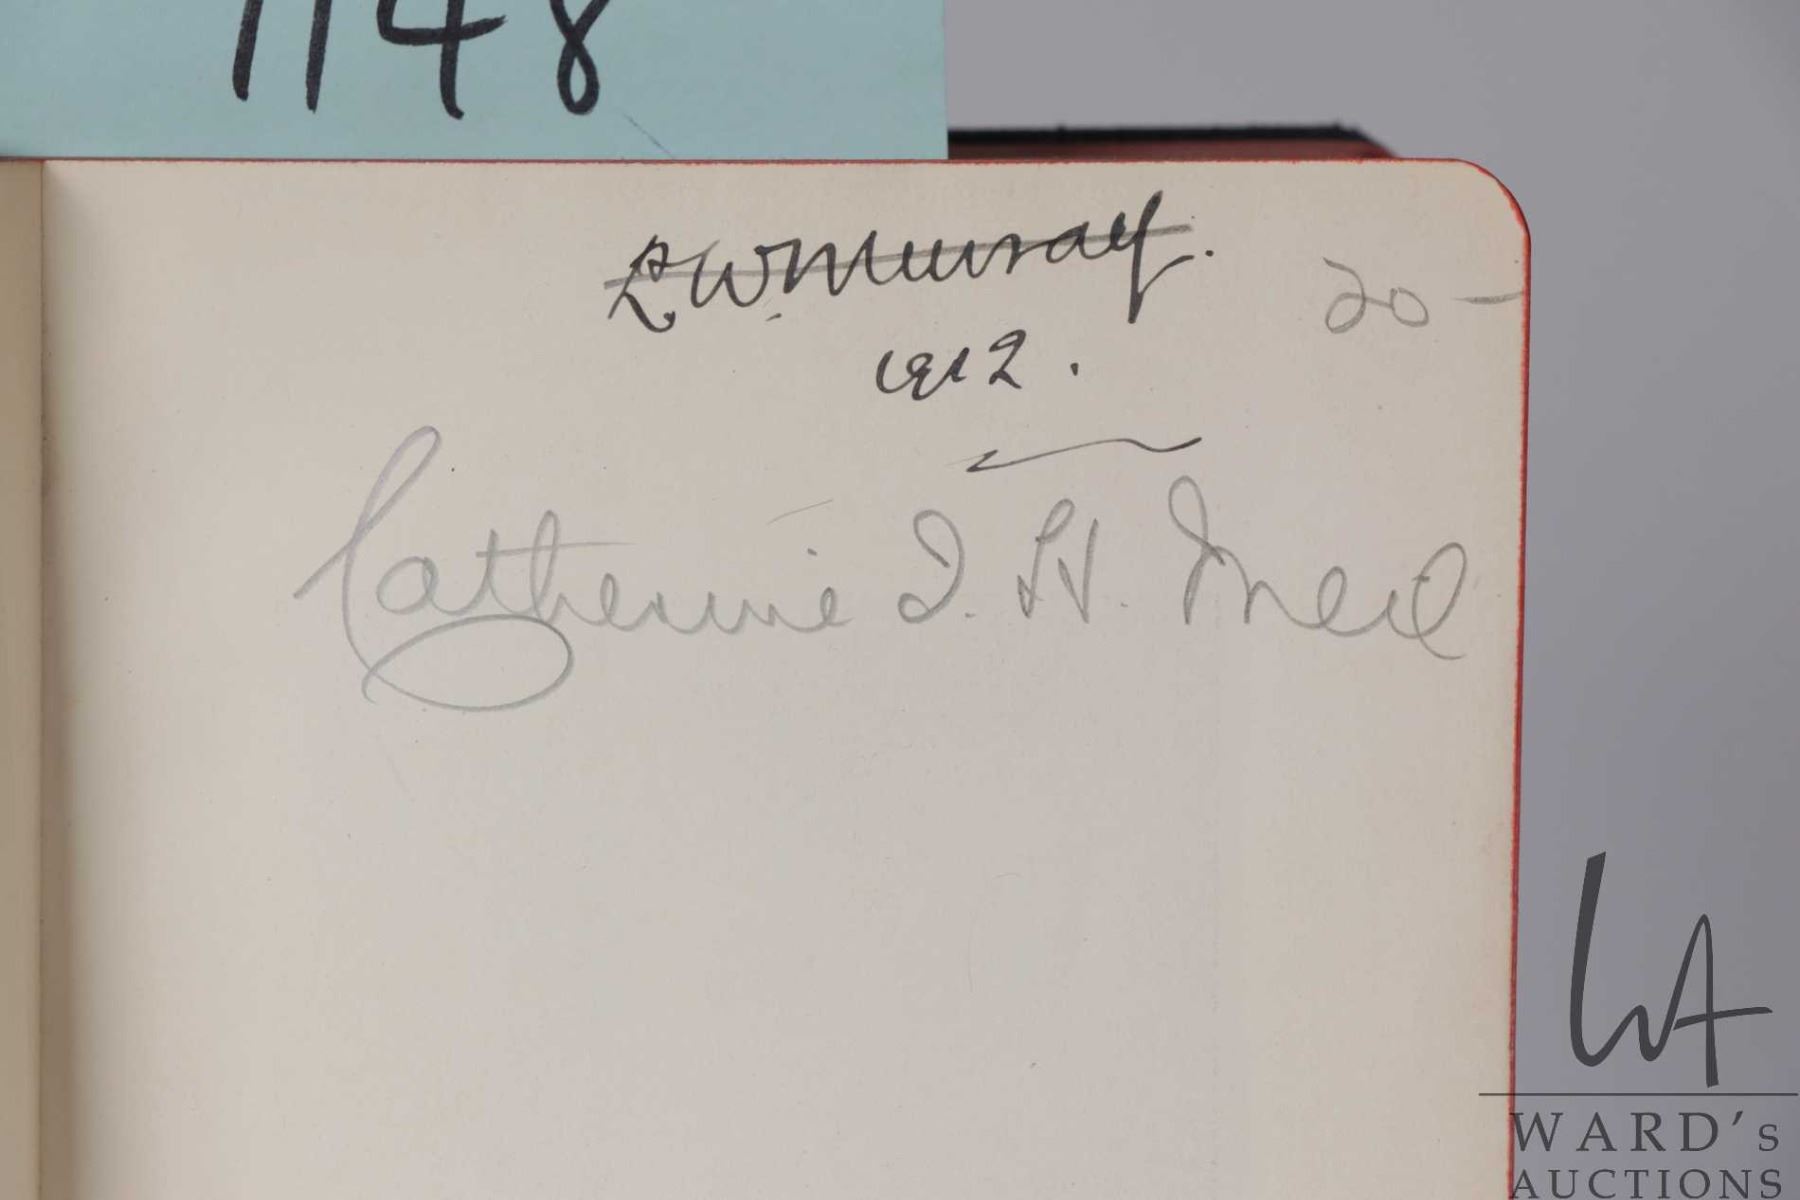 1148
R W Murray.
20 -
1912.
Catherine I. H. Meil
WA
WARD's
AUCTIONS